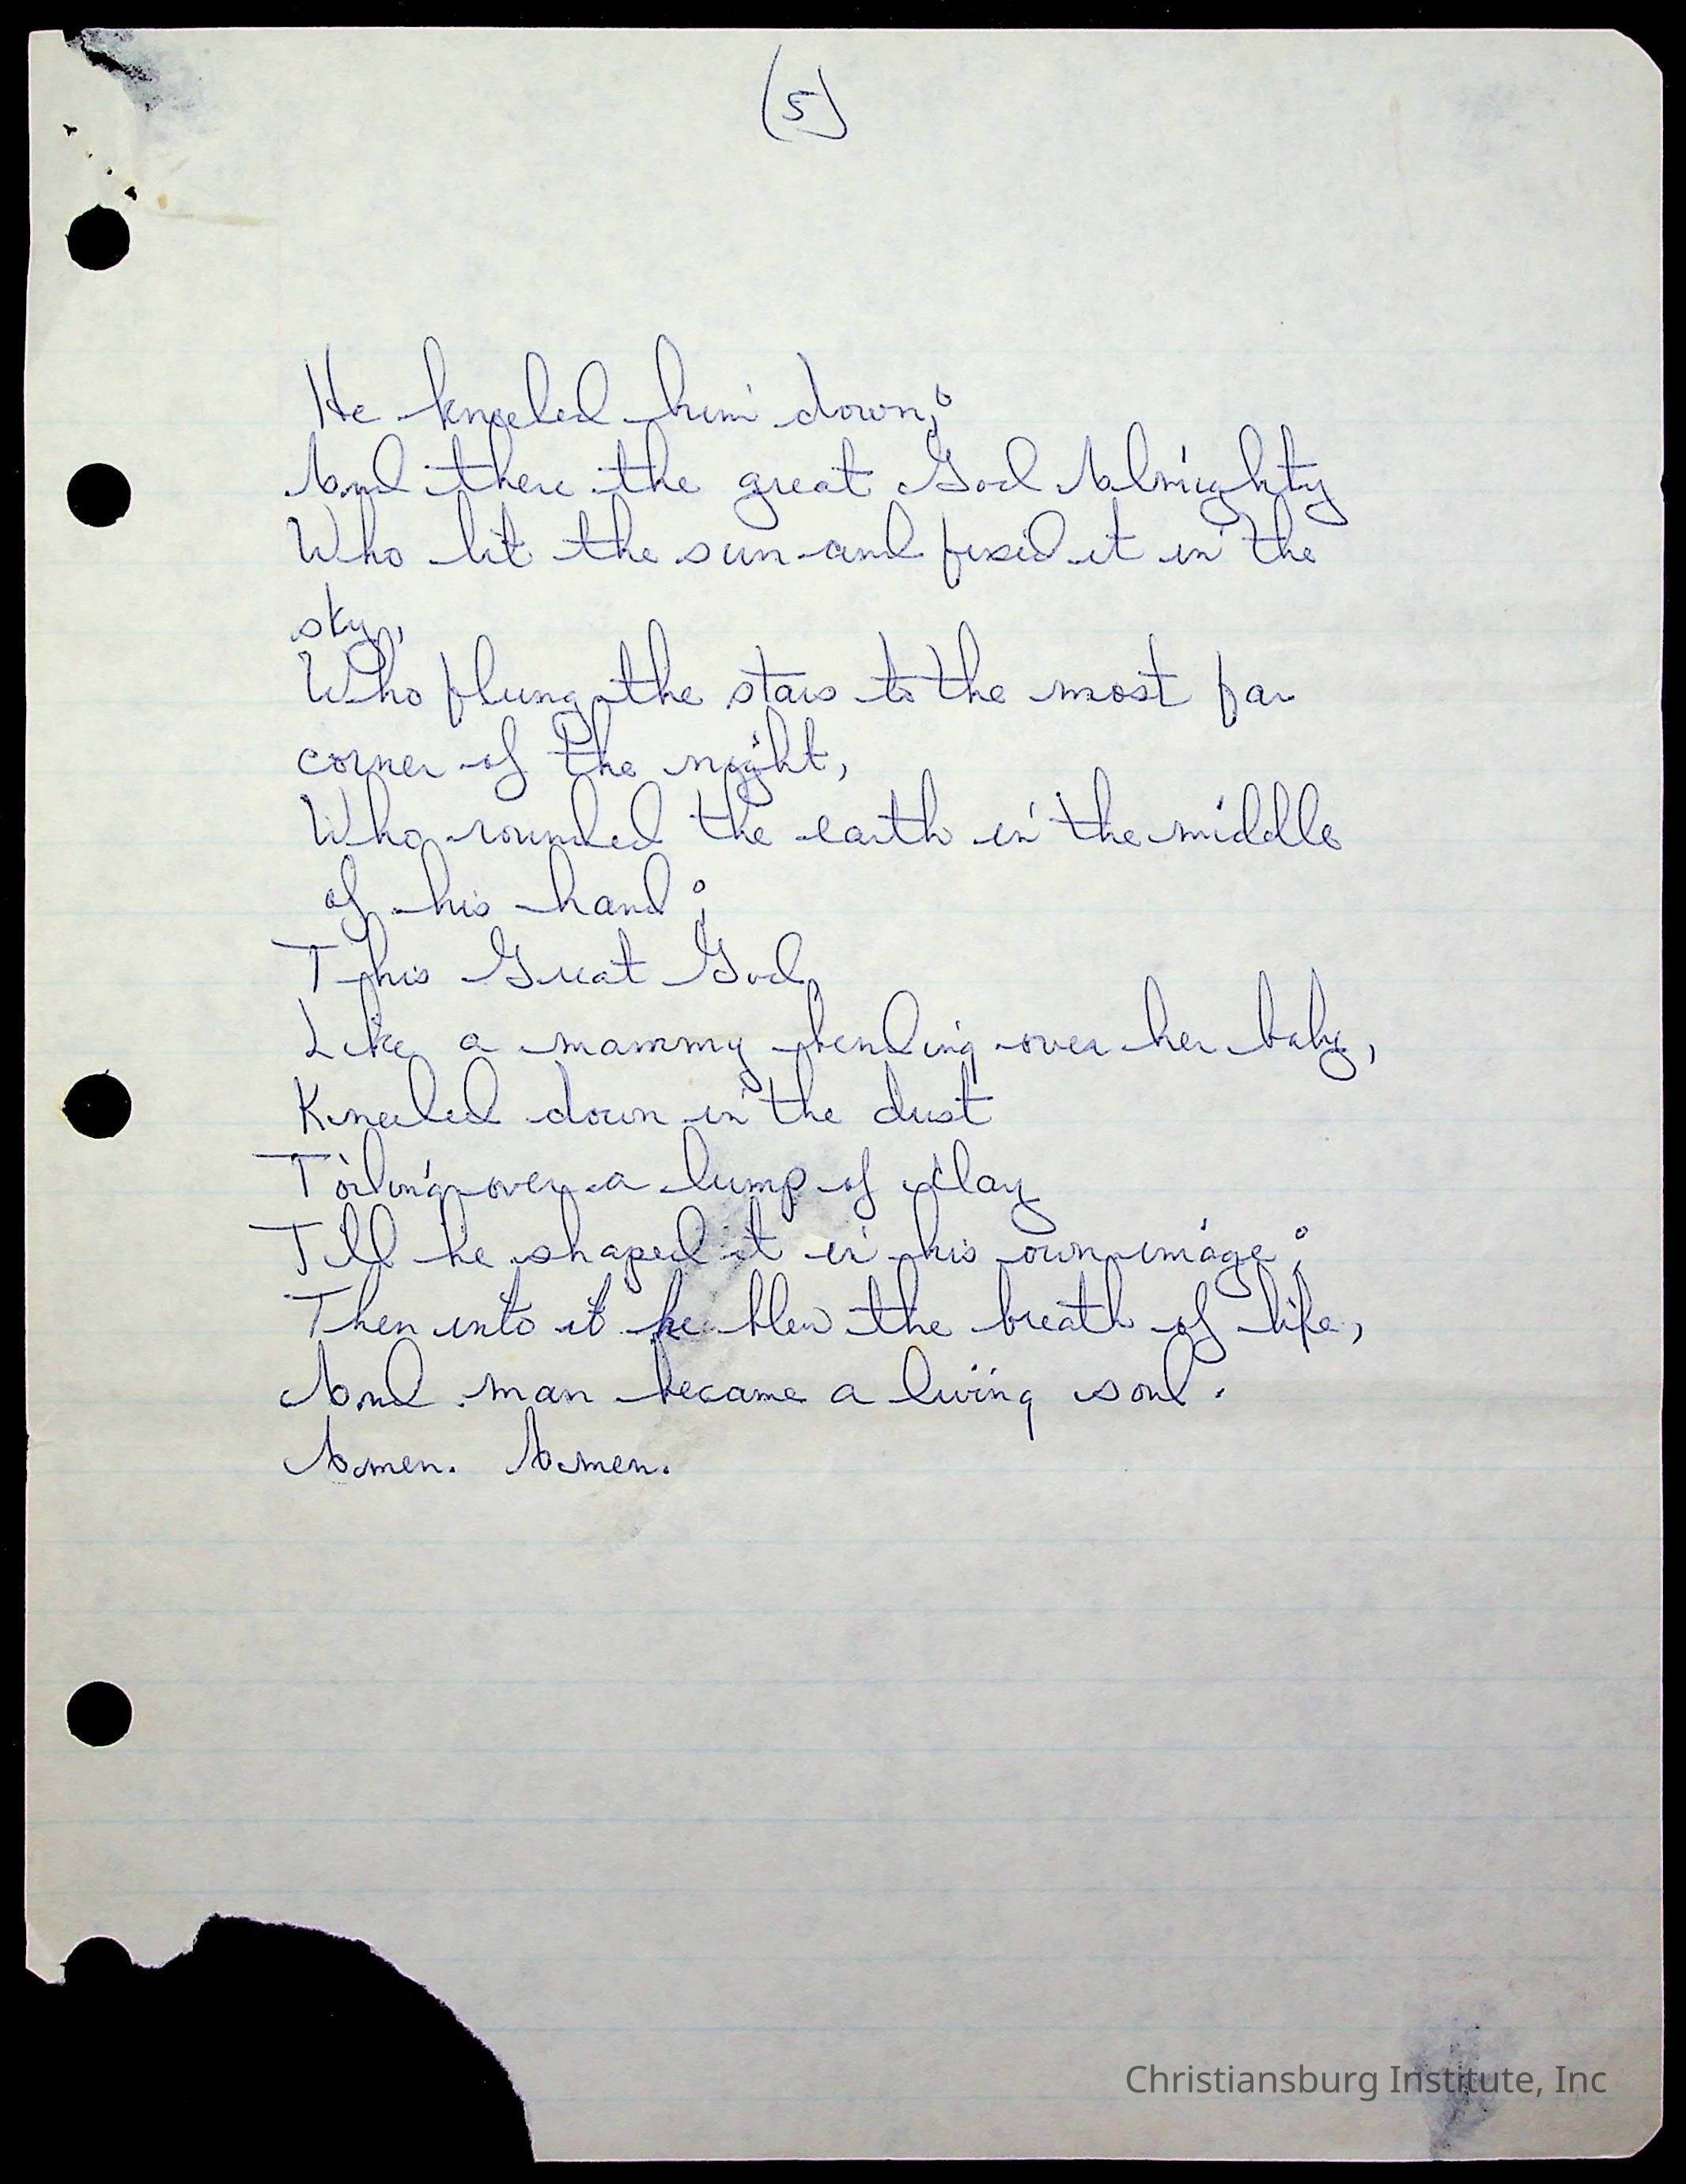 (5)
He kneeled him down;
And there the great God Almighty
Who lit the sun and fixed it in the
sky,
Who flung the stars to the most far
corner of the night,
Who rounded the earth in the middle
of his hand;
This Great God,
Like a mammy bending over her baby,
Kneeled down in the dust
Toiling over a lump of clay
Till he shaped it in his own image;
Then into it he blew the breath of life,
And man became a living soul.
Amen. Amen.
Christiansburg Institute, Inc